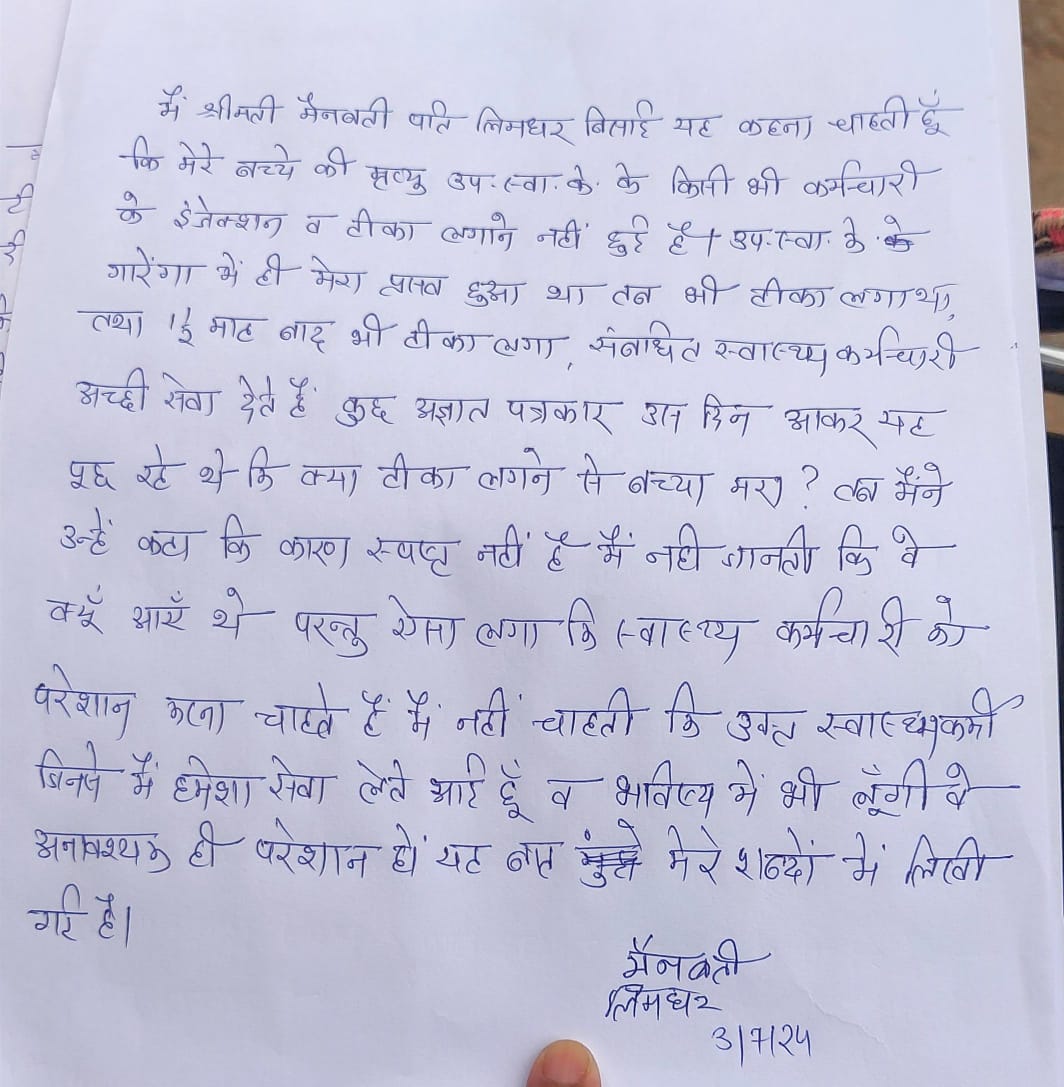 मैं श्रीमती मैनबती पति लिमधर बिसाई यह कहना चाहती हूँ
कि मेरे बच्चे की मृत्यु उप. स्वा. के. के किसी भी कर्मचारी
के इंजेक्शन व टीका लगाने नहीं हुई है। उप. स्वा. के.
गारेंगा में ही मेरा प्रसव हुआ था तब भी टीका लगा था,
तथा 1½ माह बाद भी टीका लगा, संबंधित स्वास्थ्य कर्मचारी
अच्छी सेवा देते हैं कुछ अज्ञात पत्रकार उस दिन आकर यह
पूछ रहे थे कि क्या टीका लगने से बच्चा मरा? तब मैंने
उन्हें कहा कि कारण स्पष्ट नहीं है मैं नही जानती कि वे
क्यूँ आएँ थे परन्तु ऐसा लगा कि स्वास्थ्य कर्मचारी को
परेशान करना चाहते हैं मैं नहीं चाहती कि उक्त स्वास्थ्यकर्मी
जिनसे मैं हमेशा सेवा लेते आई हूँ व भविष्य में भी लूँगी वे
अनावश्यक ही परेशान हों यह बात मेरे शब्दों में लिखी
गई है।
मैनबती
लिमधर
3/7/24